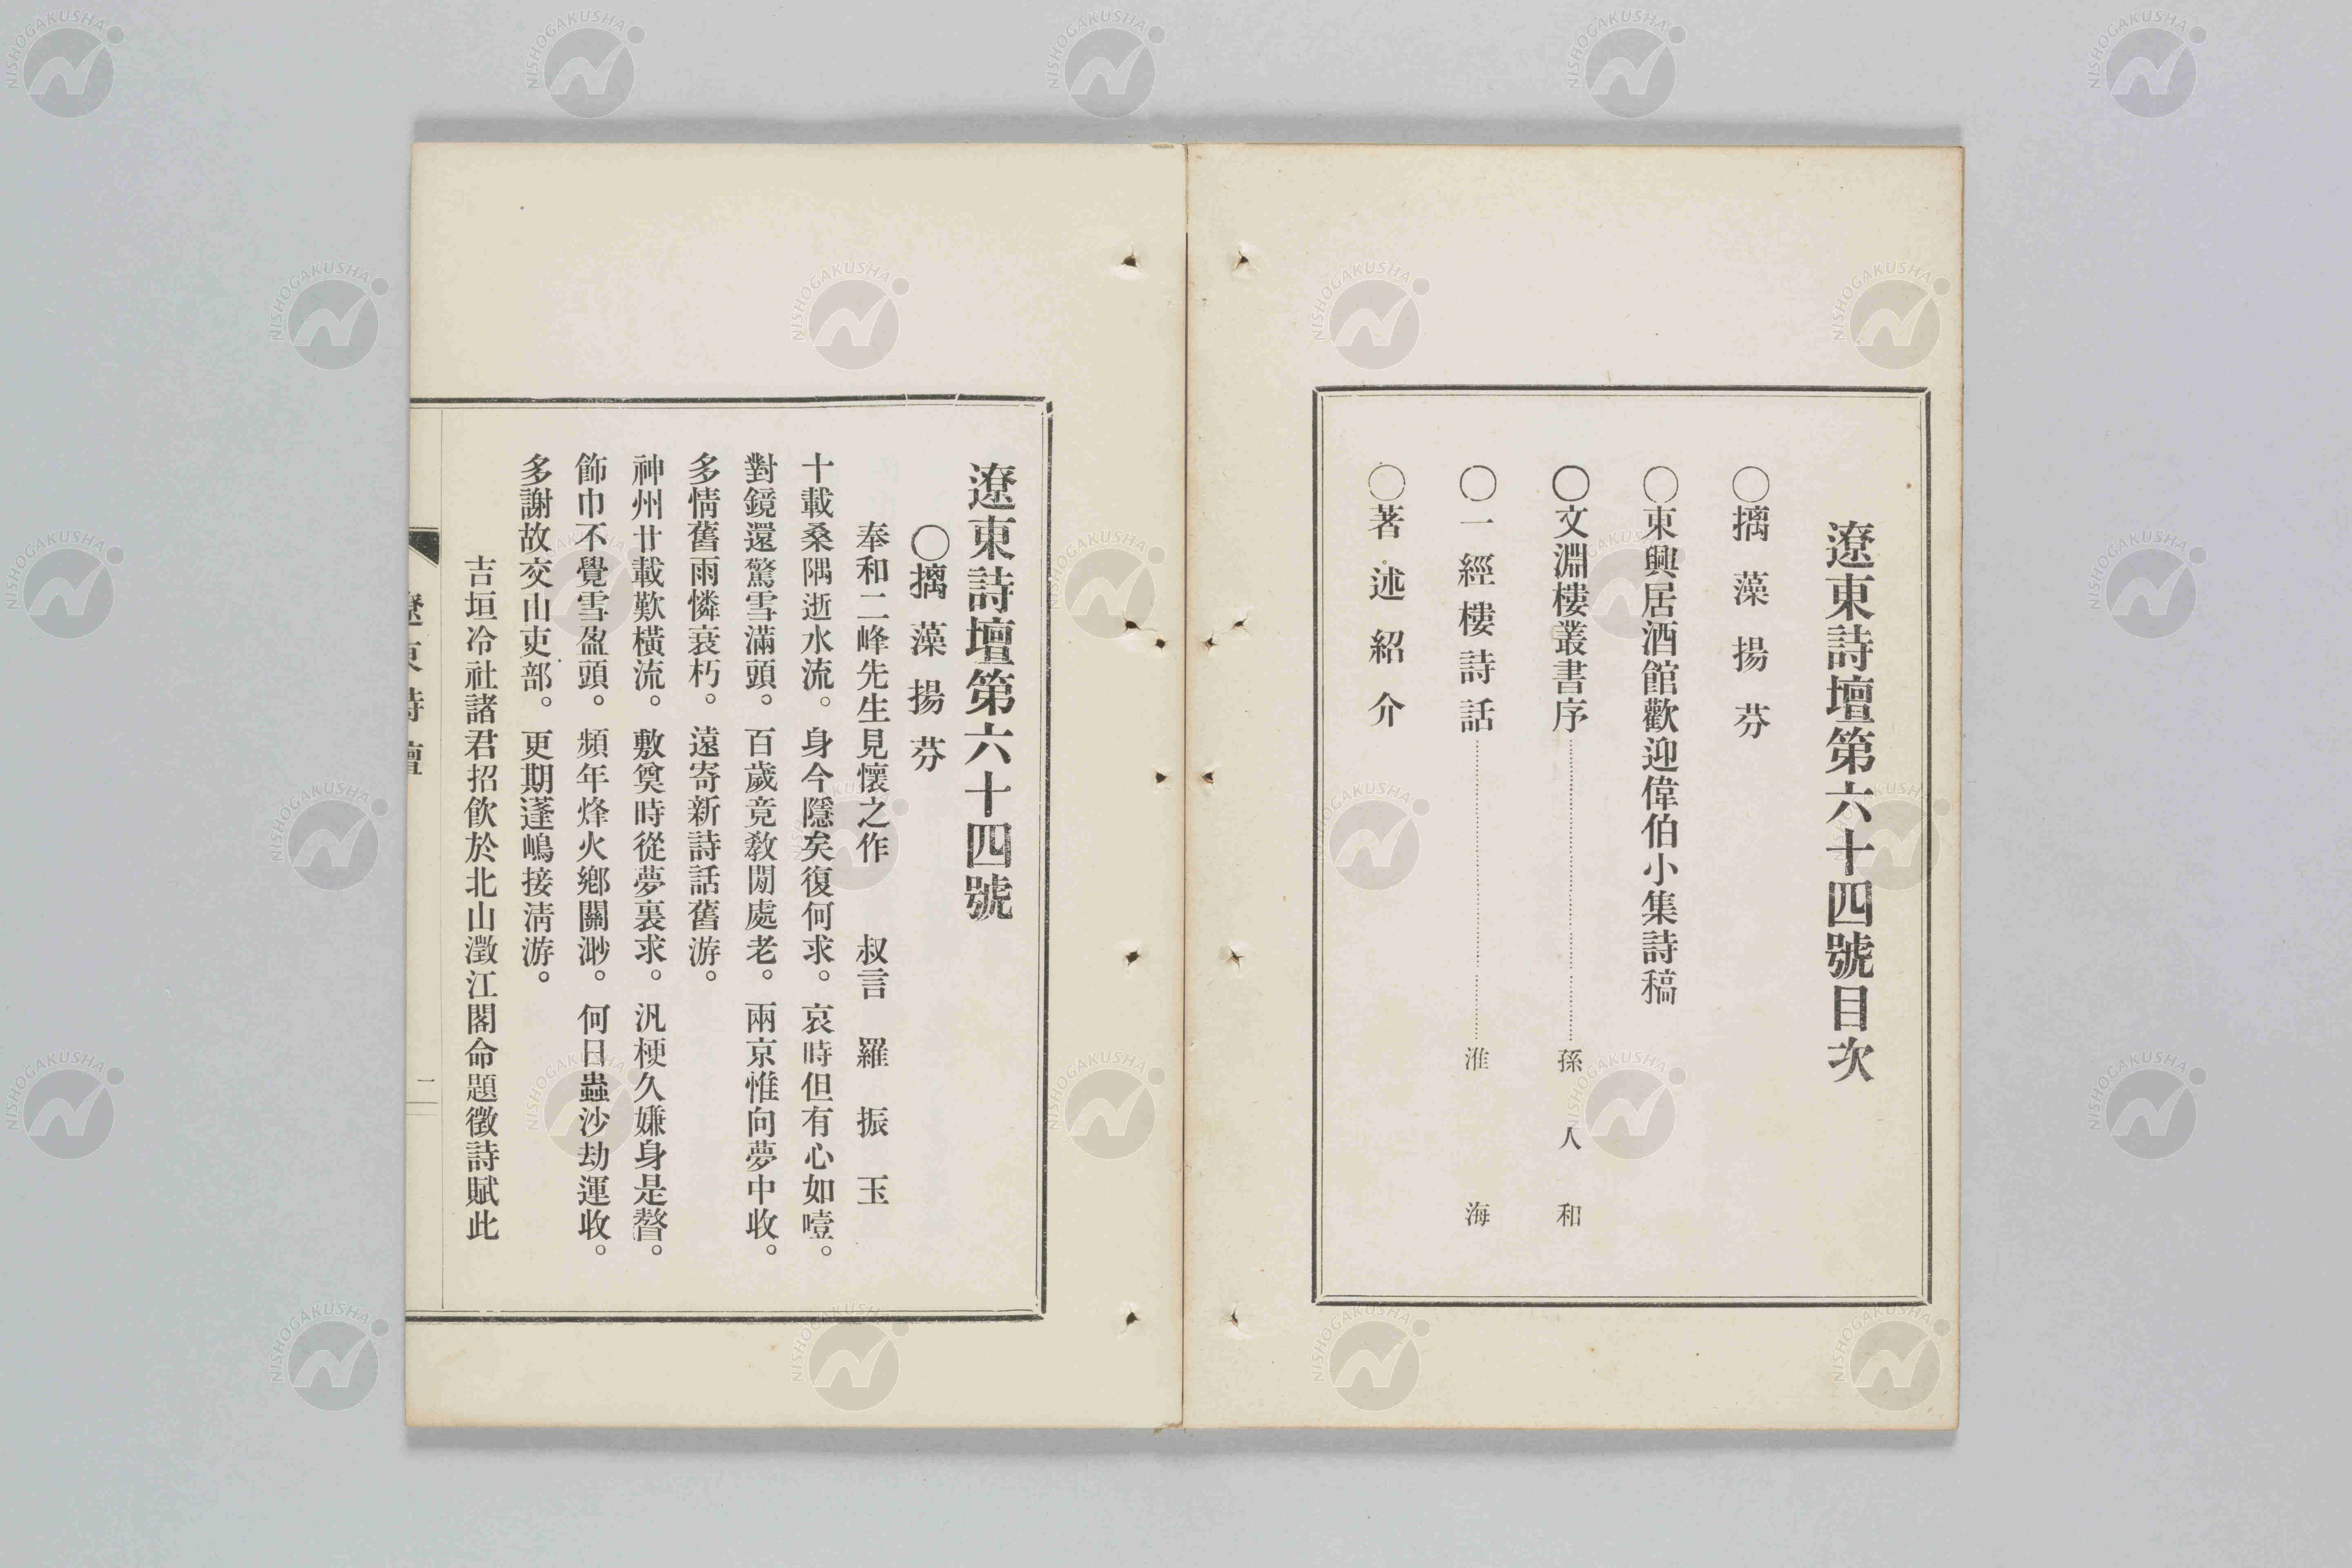 遼東詩壇第六十四號目次
〇摛藻揚芬
〇東興居酒館歡迎偉伯小集詩稿
〇文淵樓叢書序………孫人和
〇一經樓詩話………淮海
〇著述紹介
遼東詩壇第六十四號
〇摛藻揚芬
奉和二峰先生見懷之作 叔言 羅振玉
十載桑隅逝水流。身今隱矣復何求。哀時但有心如噎。
對鏡還驚雪滿頭。百歲竟教閒處老。兩京惟向夢中收。
多情舊雨憐衰朽。遠寄新詩話舊游。
神州廿載歎橫流。敷奠時從夢裏求。汎梗久嫌身是贅。
飾巾不覺雪盈頭。頻年烽火鄉關渺。何日蟲沙劫運收。
多謝故交山吏部。更期蓬嶋接淸游。
吉垣冷社諸君招飲於北山澂江閣命題徵詩賦此
遼東詩壇
一
NISHOGAKUSHA